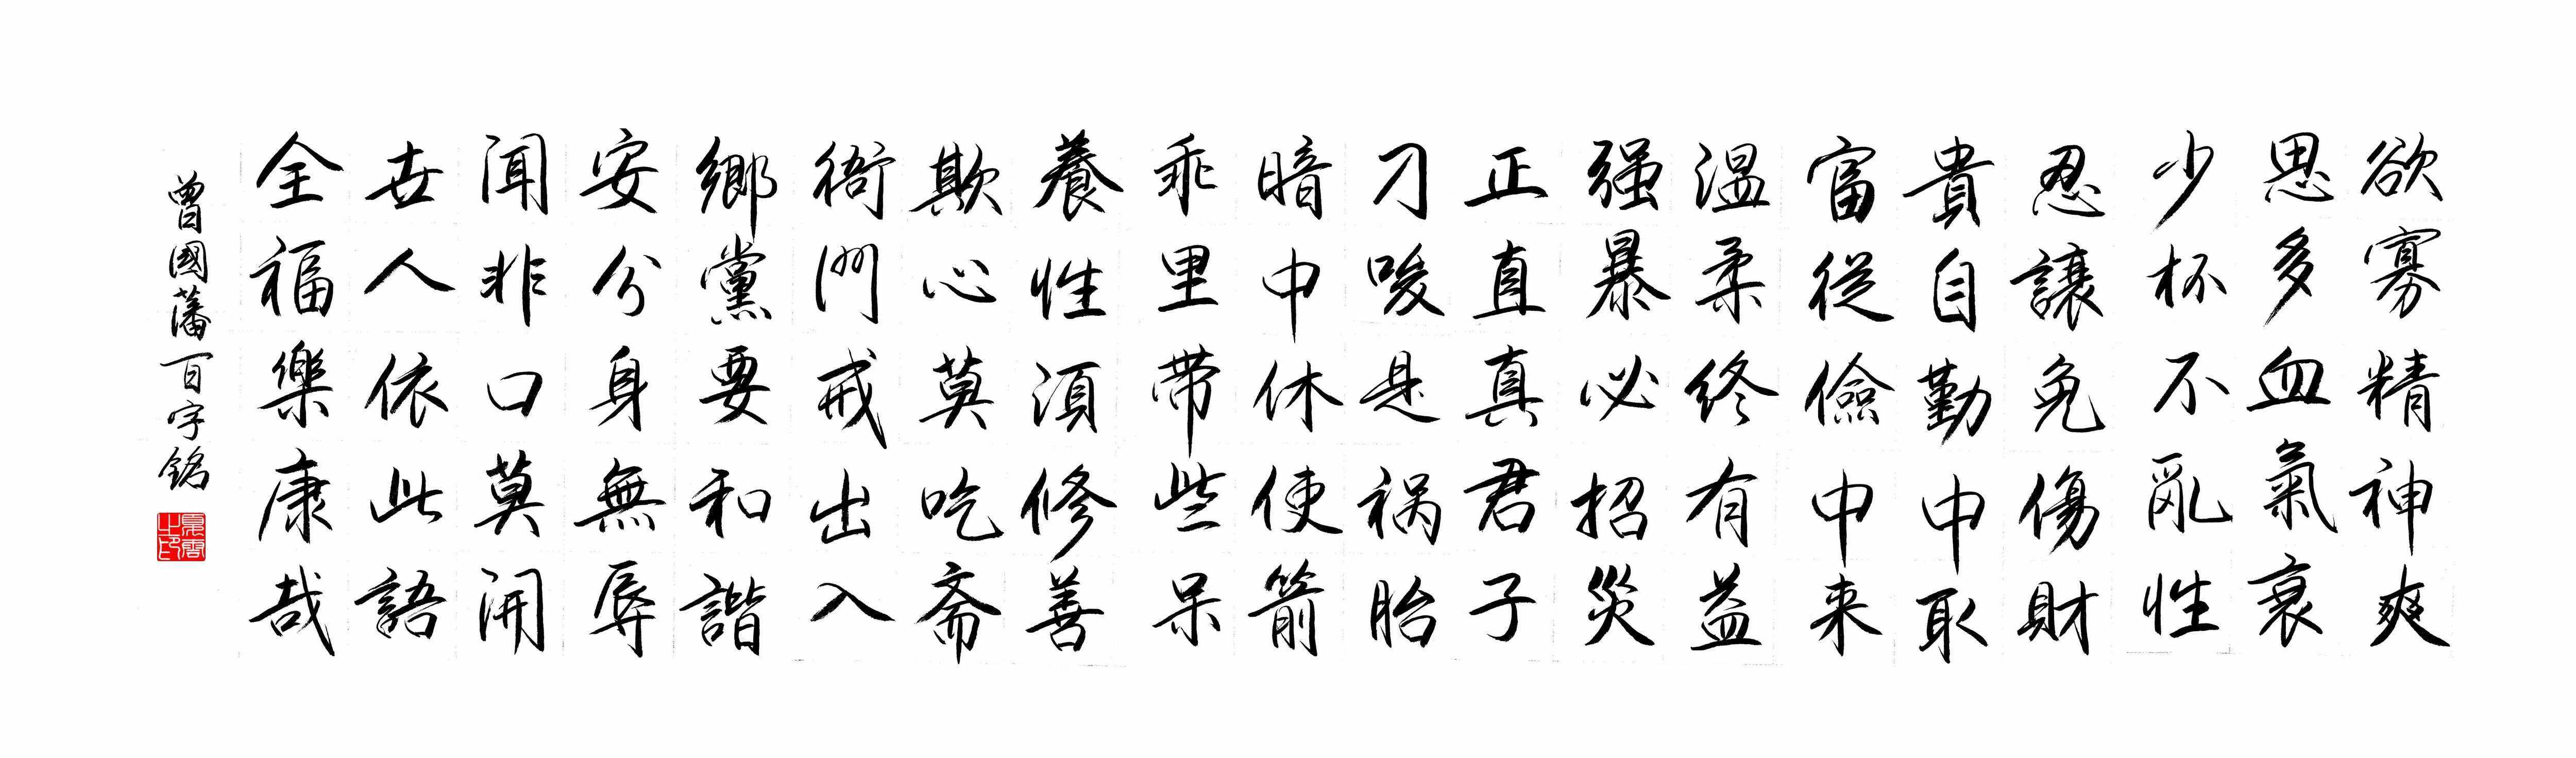 欲寡精神爽
思多血氣衰
少杯不亂性
忍讓免傷財
貴自勤中取
富從儉中来
溫柔終有益
强暴必招災
正直真君子
刁唆是祸胎
暗中休使箭
乖里带些呆
養性須修善
欺心莫吃斋
衙門戒出入
鄉黨要和諧
安分身無辱
闻非口莫開
世人依此語
全福樂康哉
曾國藩百字銘